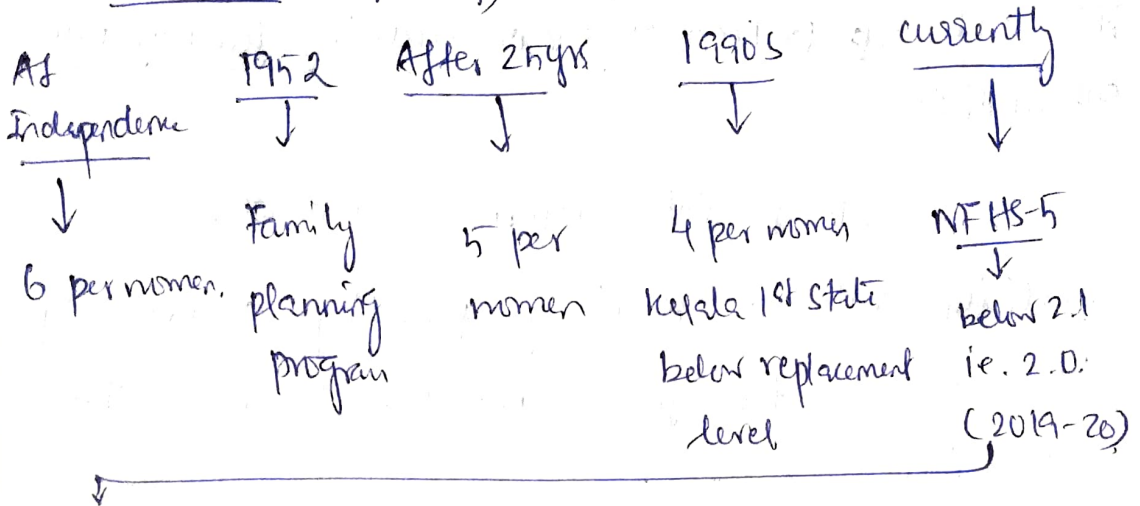 At Independence
↓
6 per women.
1952
↓
Family
planning
program
After 25yrs
↓
5 per
women
1990's
↓
4 per women
Kerala 1st State
below replacement
level
currently
↓
NFHS-5
↓
below 2.1
ie. 2.0.
(2019-20)